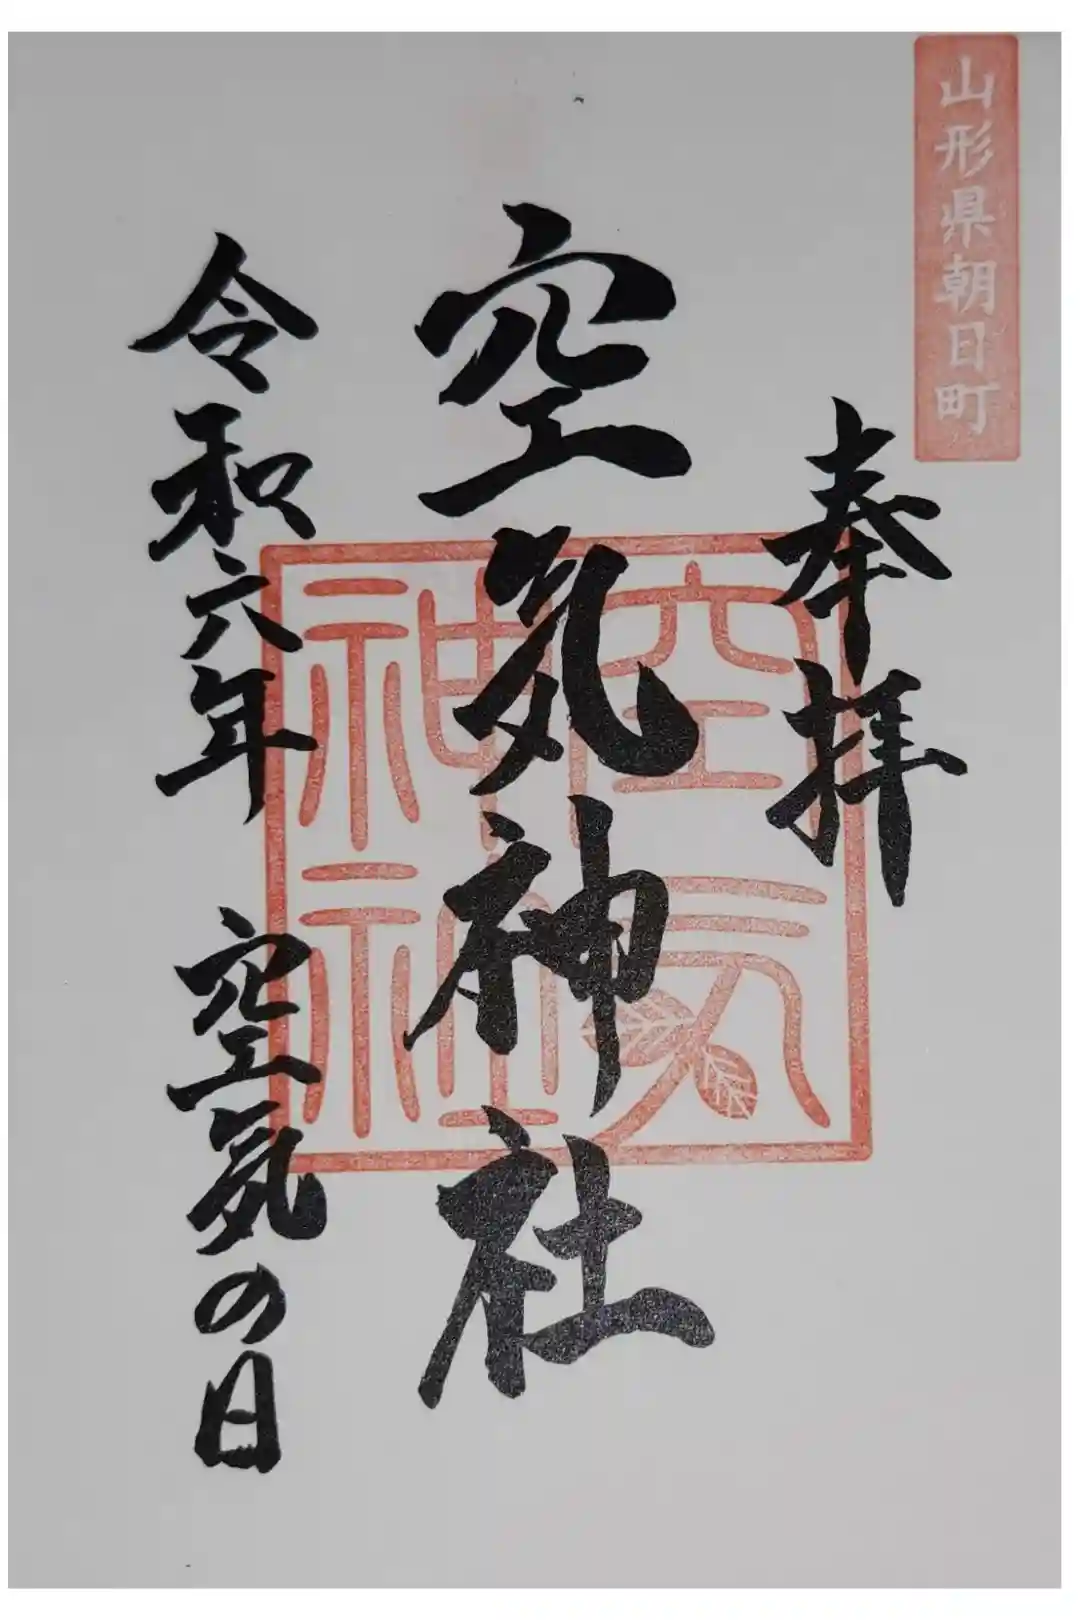 山形県朝日町
奉拝
空気神社
空気神社
令和六年 空気の日